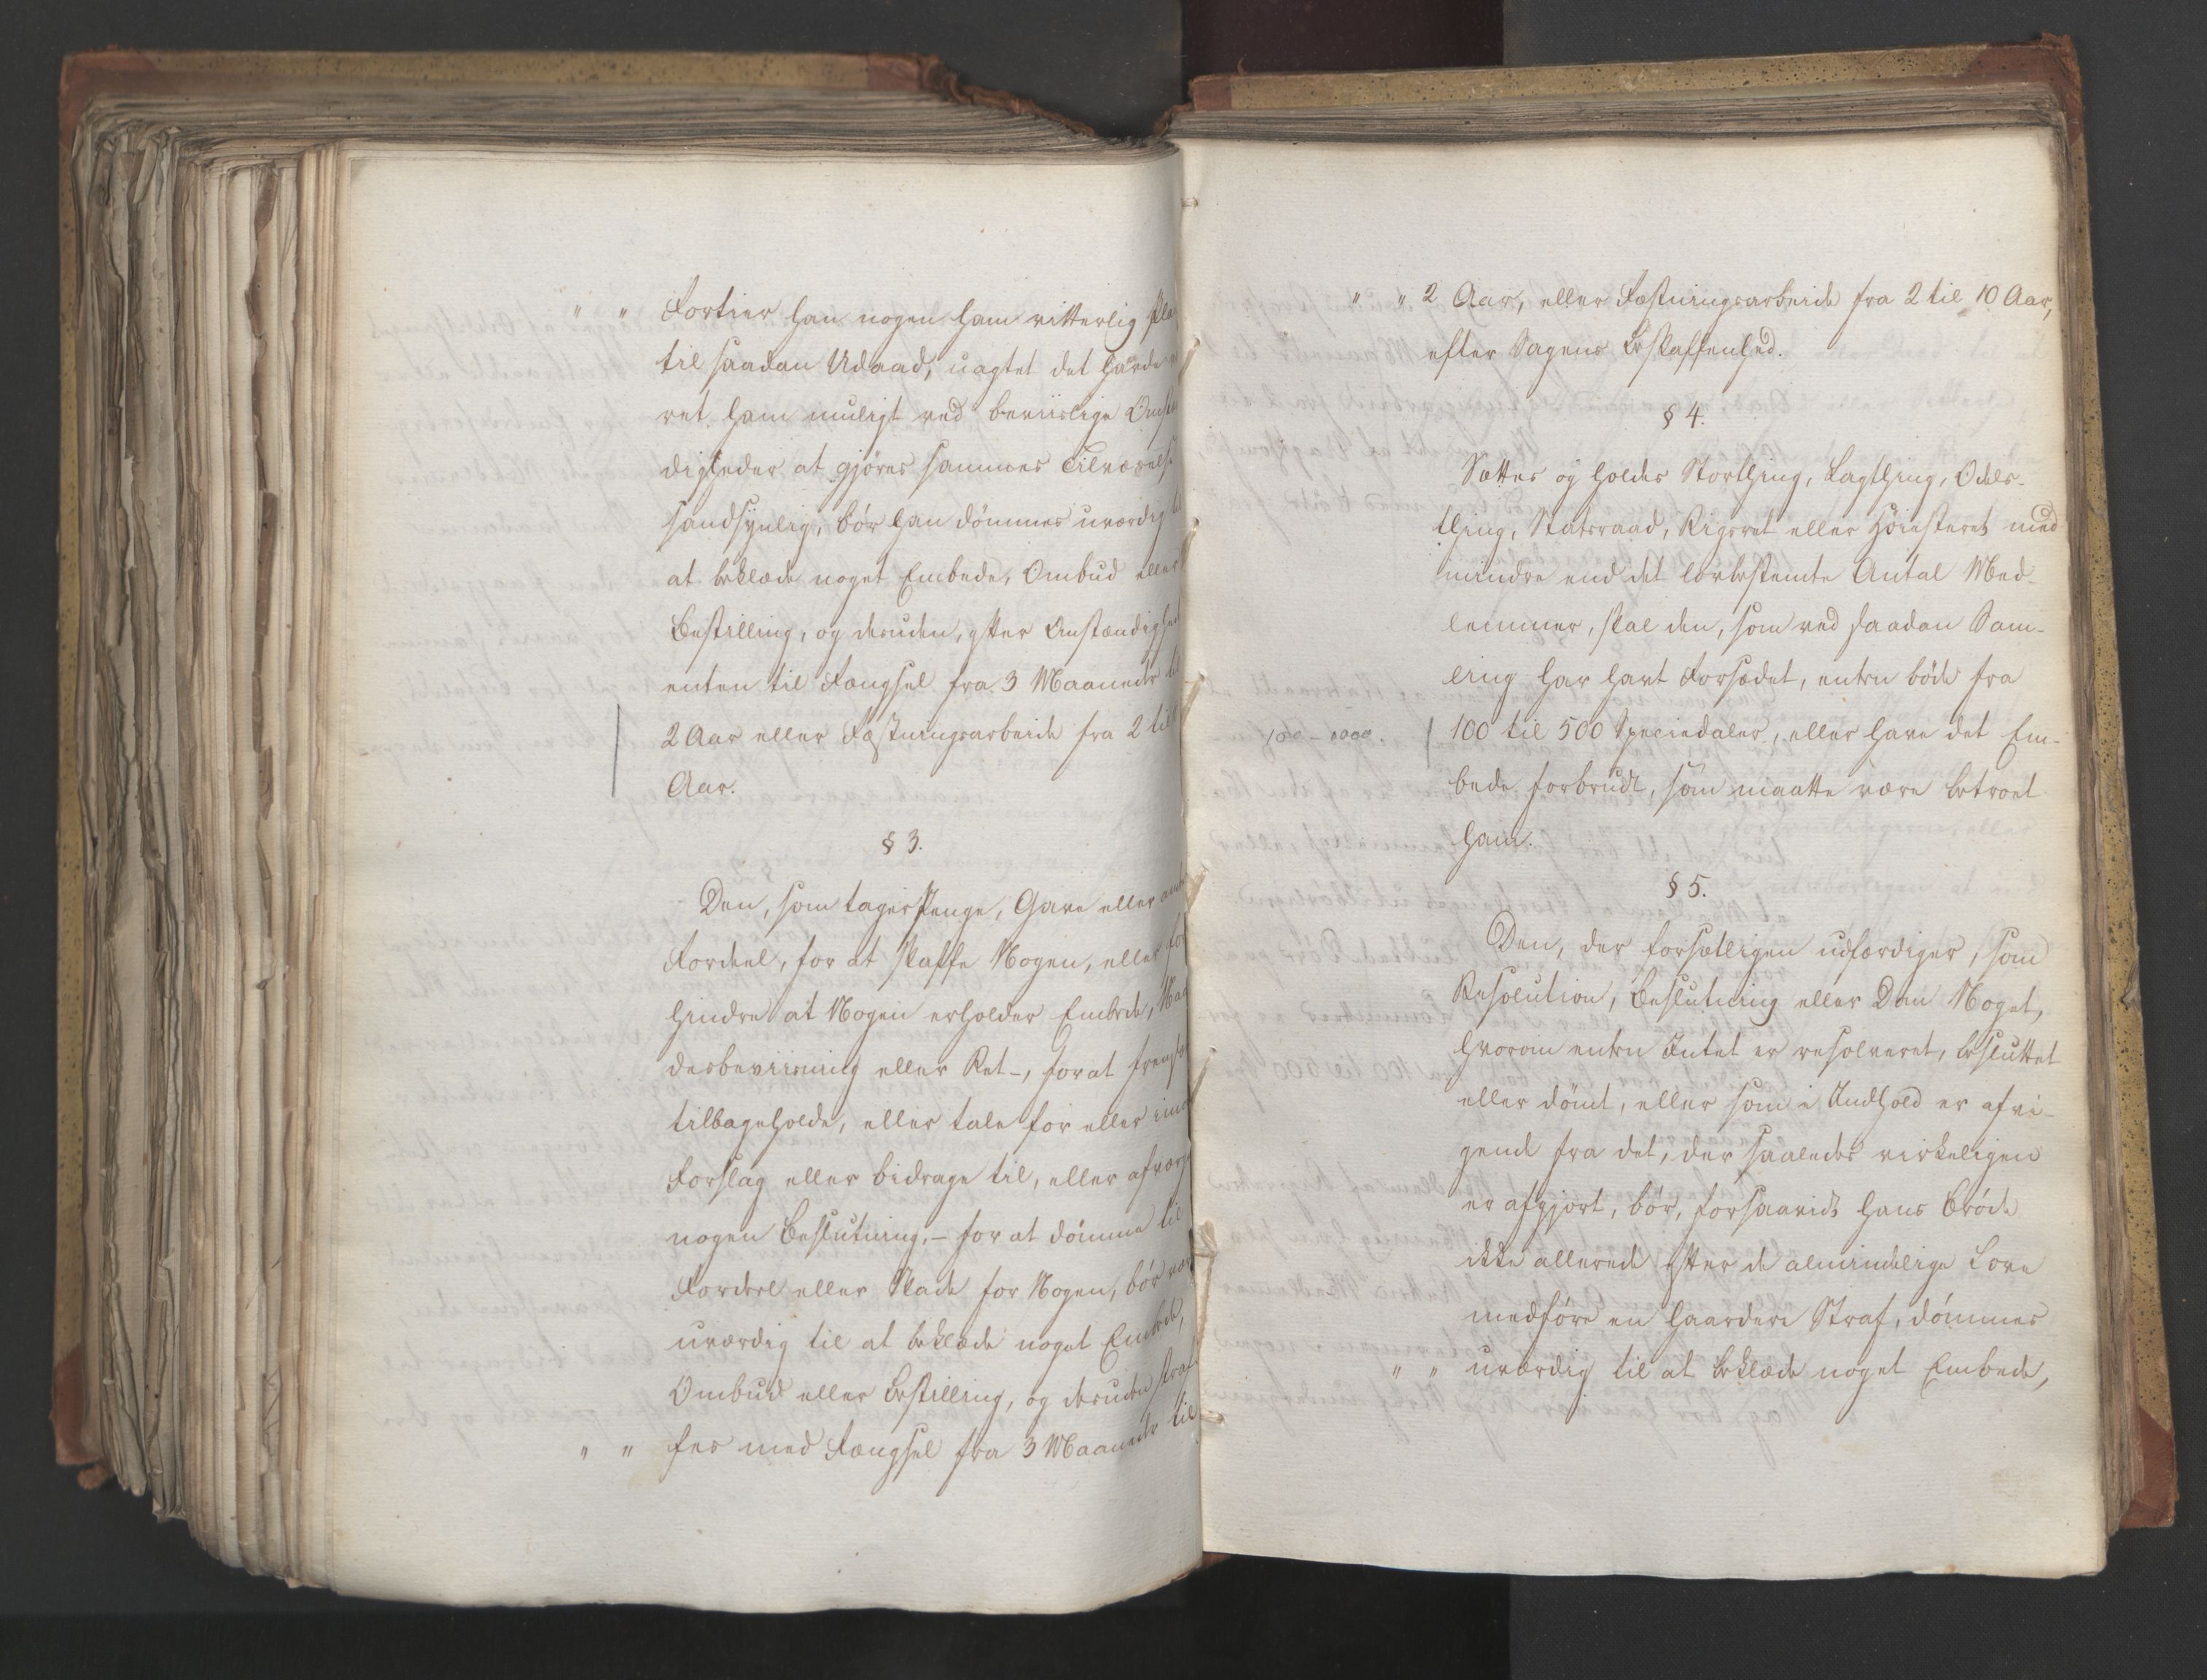 " " Fortier han nogen ham vitterlig
til saadan Udaad, uagtet det havde
ret ham muligt ved beviislige Omstæn
digheder at gjøres sammes Tilværelse
sandsynlig, bör han dömmes uværdig til
at beklæde noget Embede, Ombud eller
Bestilling, og desuden, efter Omstændighed
enten til Fængsel fra 3 Maaneder til
2 Aar eller Fæstningsarbeide fra 2 til
Aar.
§ 3.
Den, som tager Penge, Gave eller
Fordeel, for at skaffe Nogen, eller for
hindre at Nogen erholder Embede,
desbeviisning eller Ret –, for at
tilbageholde, eller tale for eller imod
Forslag eller bidrage til, eller afværge
nogen Beslutning, – for at dömme til
Fordeel eller Skade for Nogen, bör være
uværdig til at beklæde noget Embede,
Ombud eller Bestilling, og desuden straf
" " fes med Fængsel fra 3 Maaneder til
" " 2 Aar, eller Fæstningsarbeide fra 2 til 10 Aar,
efter Sagens Beskaffenhed.
§ 4.
Sættes og holdes Storthing, Lagthing, Odels-
thing, Statsraad, Rigsret eller Höiesteret med
mindre end det lovbestemte Antal Med-
lemmer, skal den, som ved saadan Sam-
ling har havt Forsædet, enten böde fra
100 – 1000. 100 til 500 Speciedaler, eller have det Em-
bede forbrudt, som maatte være betroet
ham.
§ 5.
Den, der forsætligen udfærdiger, som
Resolution, Beslutning eller Dom Noget,
hvorom enten Intet er resolveret, besluttet
eller dömt, eller som i Indhold er afvi-
gende fra det, der saaledes virkeligen
er afgjort, bör, forsaavidt hans Bröde
ikke allerede efter de almindelige Love
medföre en haardere Straf, dömmes
" " uværdig til at beklæde noget Embede,